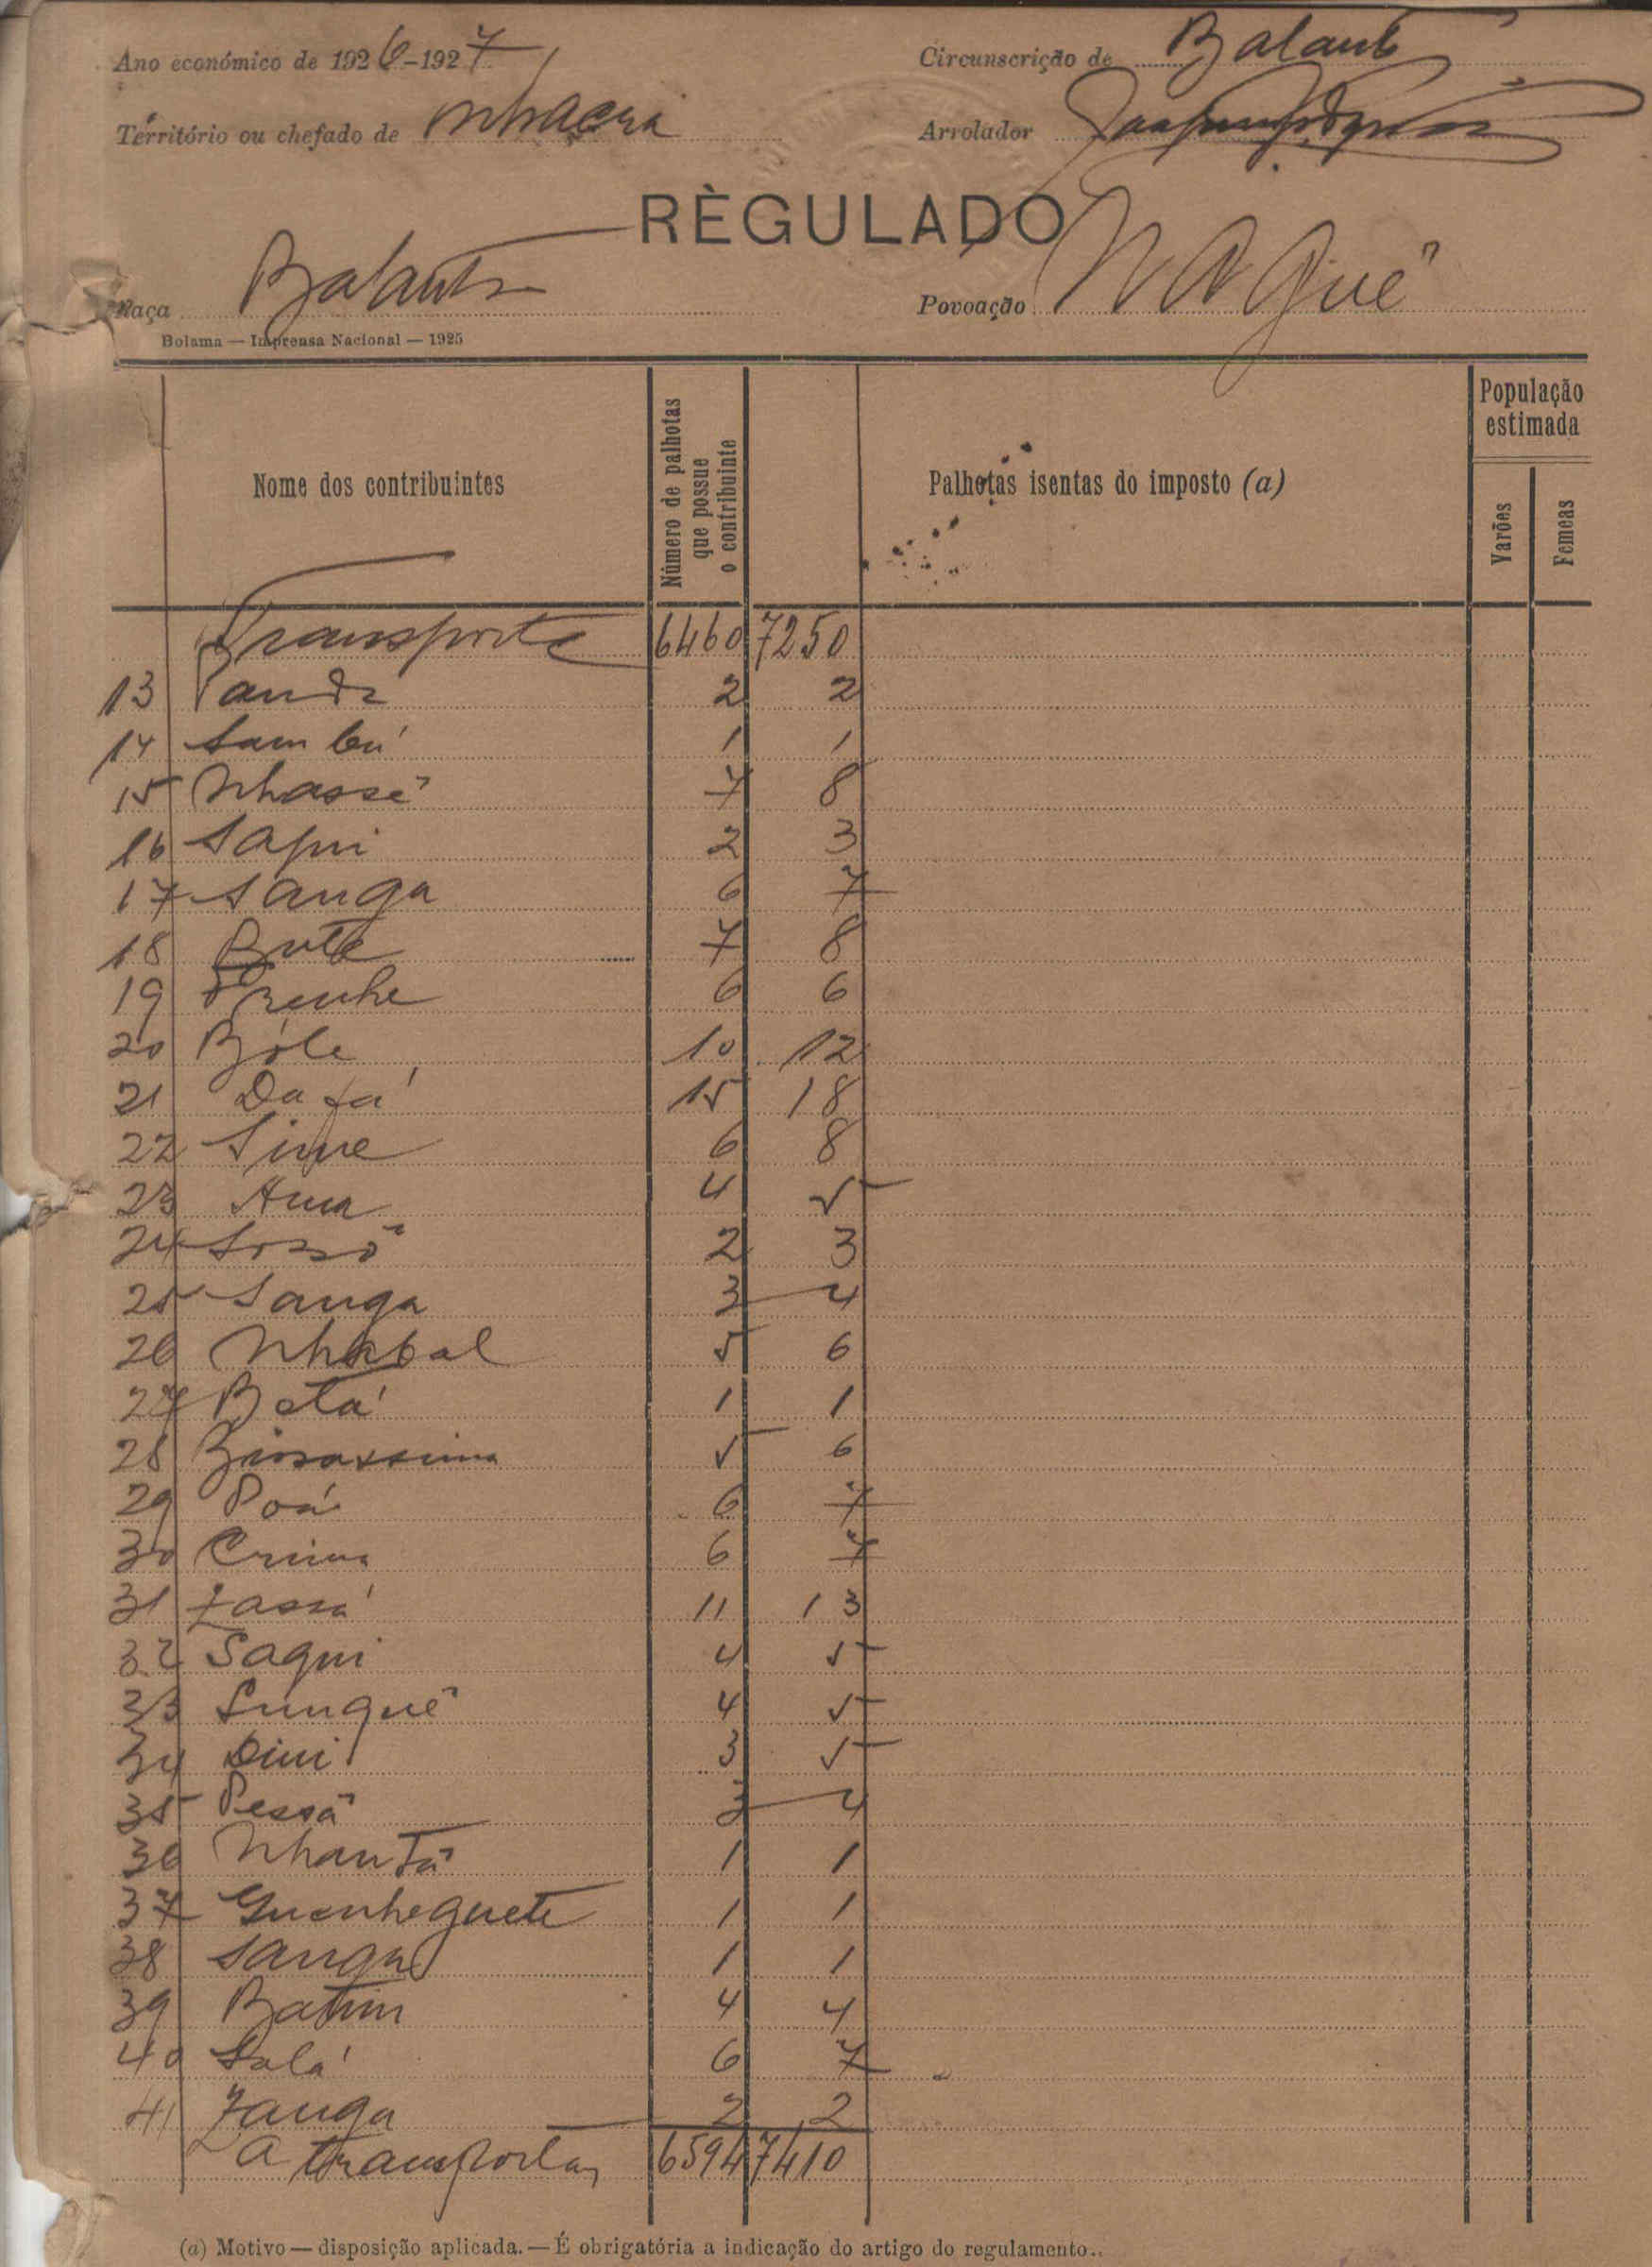 Ano económico de 1926-1927 Circunscrição de Balanta
Território ou chefado de Nhacra Arrolador
RÈGULADO
Raça Balanta Povoação
Bolama — Imprensa Nacional — 1925
Nome dos contribuintes Número de palhotas que possue o contribuinte Palhotas isentas do imposto (a) População estimada Varões Femeas
Transporte 6460 7250
13 2 2
14 Sambú 1 1
15 Nhassê 7 8
16 Sapui 2 3
17 Sanga 6 7
18 Bute 7 8
19 6 6
20 Bóle 10 12
21 Da fá 15 18
22 Sime 6 8
23 Ana 4 5
24 2 3
25 Sanga 3 4
26 Nhabal 5 6
27 Betá 1 1
28 5 6
29 Poá 6 7
30 6 7
31 11 13
32 Saqui 4 5
33 Sunguê 4 5
34 Dini 3 5
35 Pessã 3 4
36 Nhantã 1 1
37 Guenheguete 1 1
38 Sanga 1 1
39 Batim 4 4
40 Salá 6 7
41 Zanga 2 2
A transportar 6594 7410
(a) Motivo — disposição aplicada. — É obrigatória a indicação do artigo do regulamento..